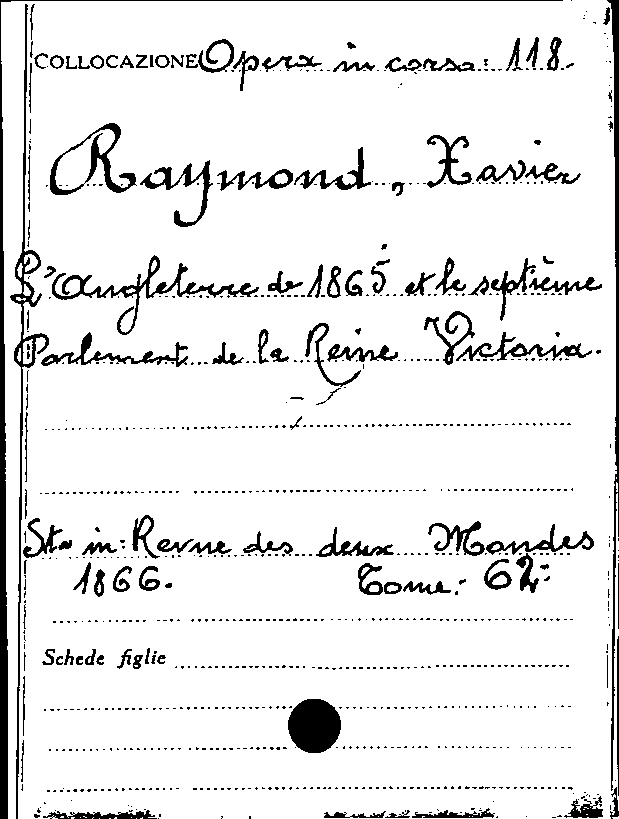 COLLOCAZIONE Opera in corso: 118.
Raymond, Xavier
L'Angleterre de 1865 et le septième
Parlement de la Reine Victoria.
Sta in: Revue des deux Mondes
1866. Tome: 62º
Schede figlie